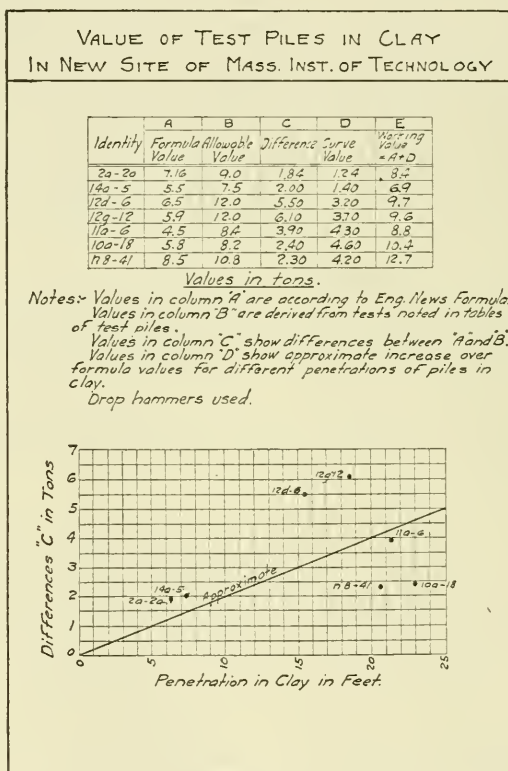 VALUE OF TEST PILES IN CLAY
IN NEW SITE OF MASS. INST. OF TECHNOLOGY
A B C D E
Identity Formula Value Allowable Value Difference Curve Value Working Value = A+D
2a-2a 7.16 9.0 1.84 1.24 8.4
14a-5 5.5 7.5 2.00 1.40 6.9
12d-6 6.5 12.0 5.50 3.20 9.7
12g-12 5.9 12.0 6.10 3.70 9.6
11a-6 4.5 8.4 3.90 4.30 8.8
10a-18 5.8 8.2 2.40 4.60 10.4
n8-41 8.5 10.8 2.30 4.20 12.7
Values in tons.
Notes:- Values in column "A" are according to Eng. News Formula.
Values in column "B" are derived from tests noted in tables
of test piles.
Values in column "C" show differences between "A" and "B".
Values in column "D" show approximate increase over
formula values for different penetrations of piles in
clay.
Drop hammers used.
Differences "C" in Tons
7
6
5
4
3
2
1
0
12g-12
12d-6
11a-6
14a-5
2a-2a
Approximate
n8-41
10a-18
0 5 10 15 20 25
Penetration in Clay in Feet.